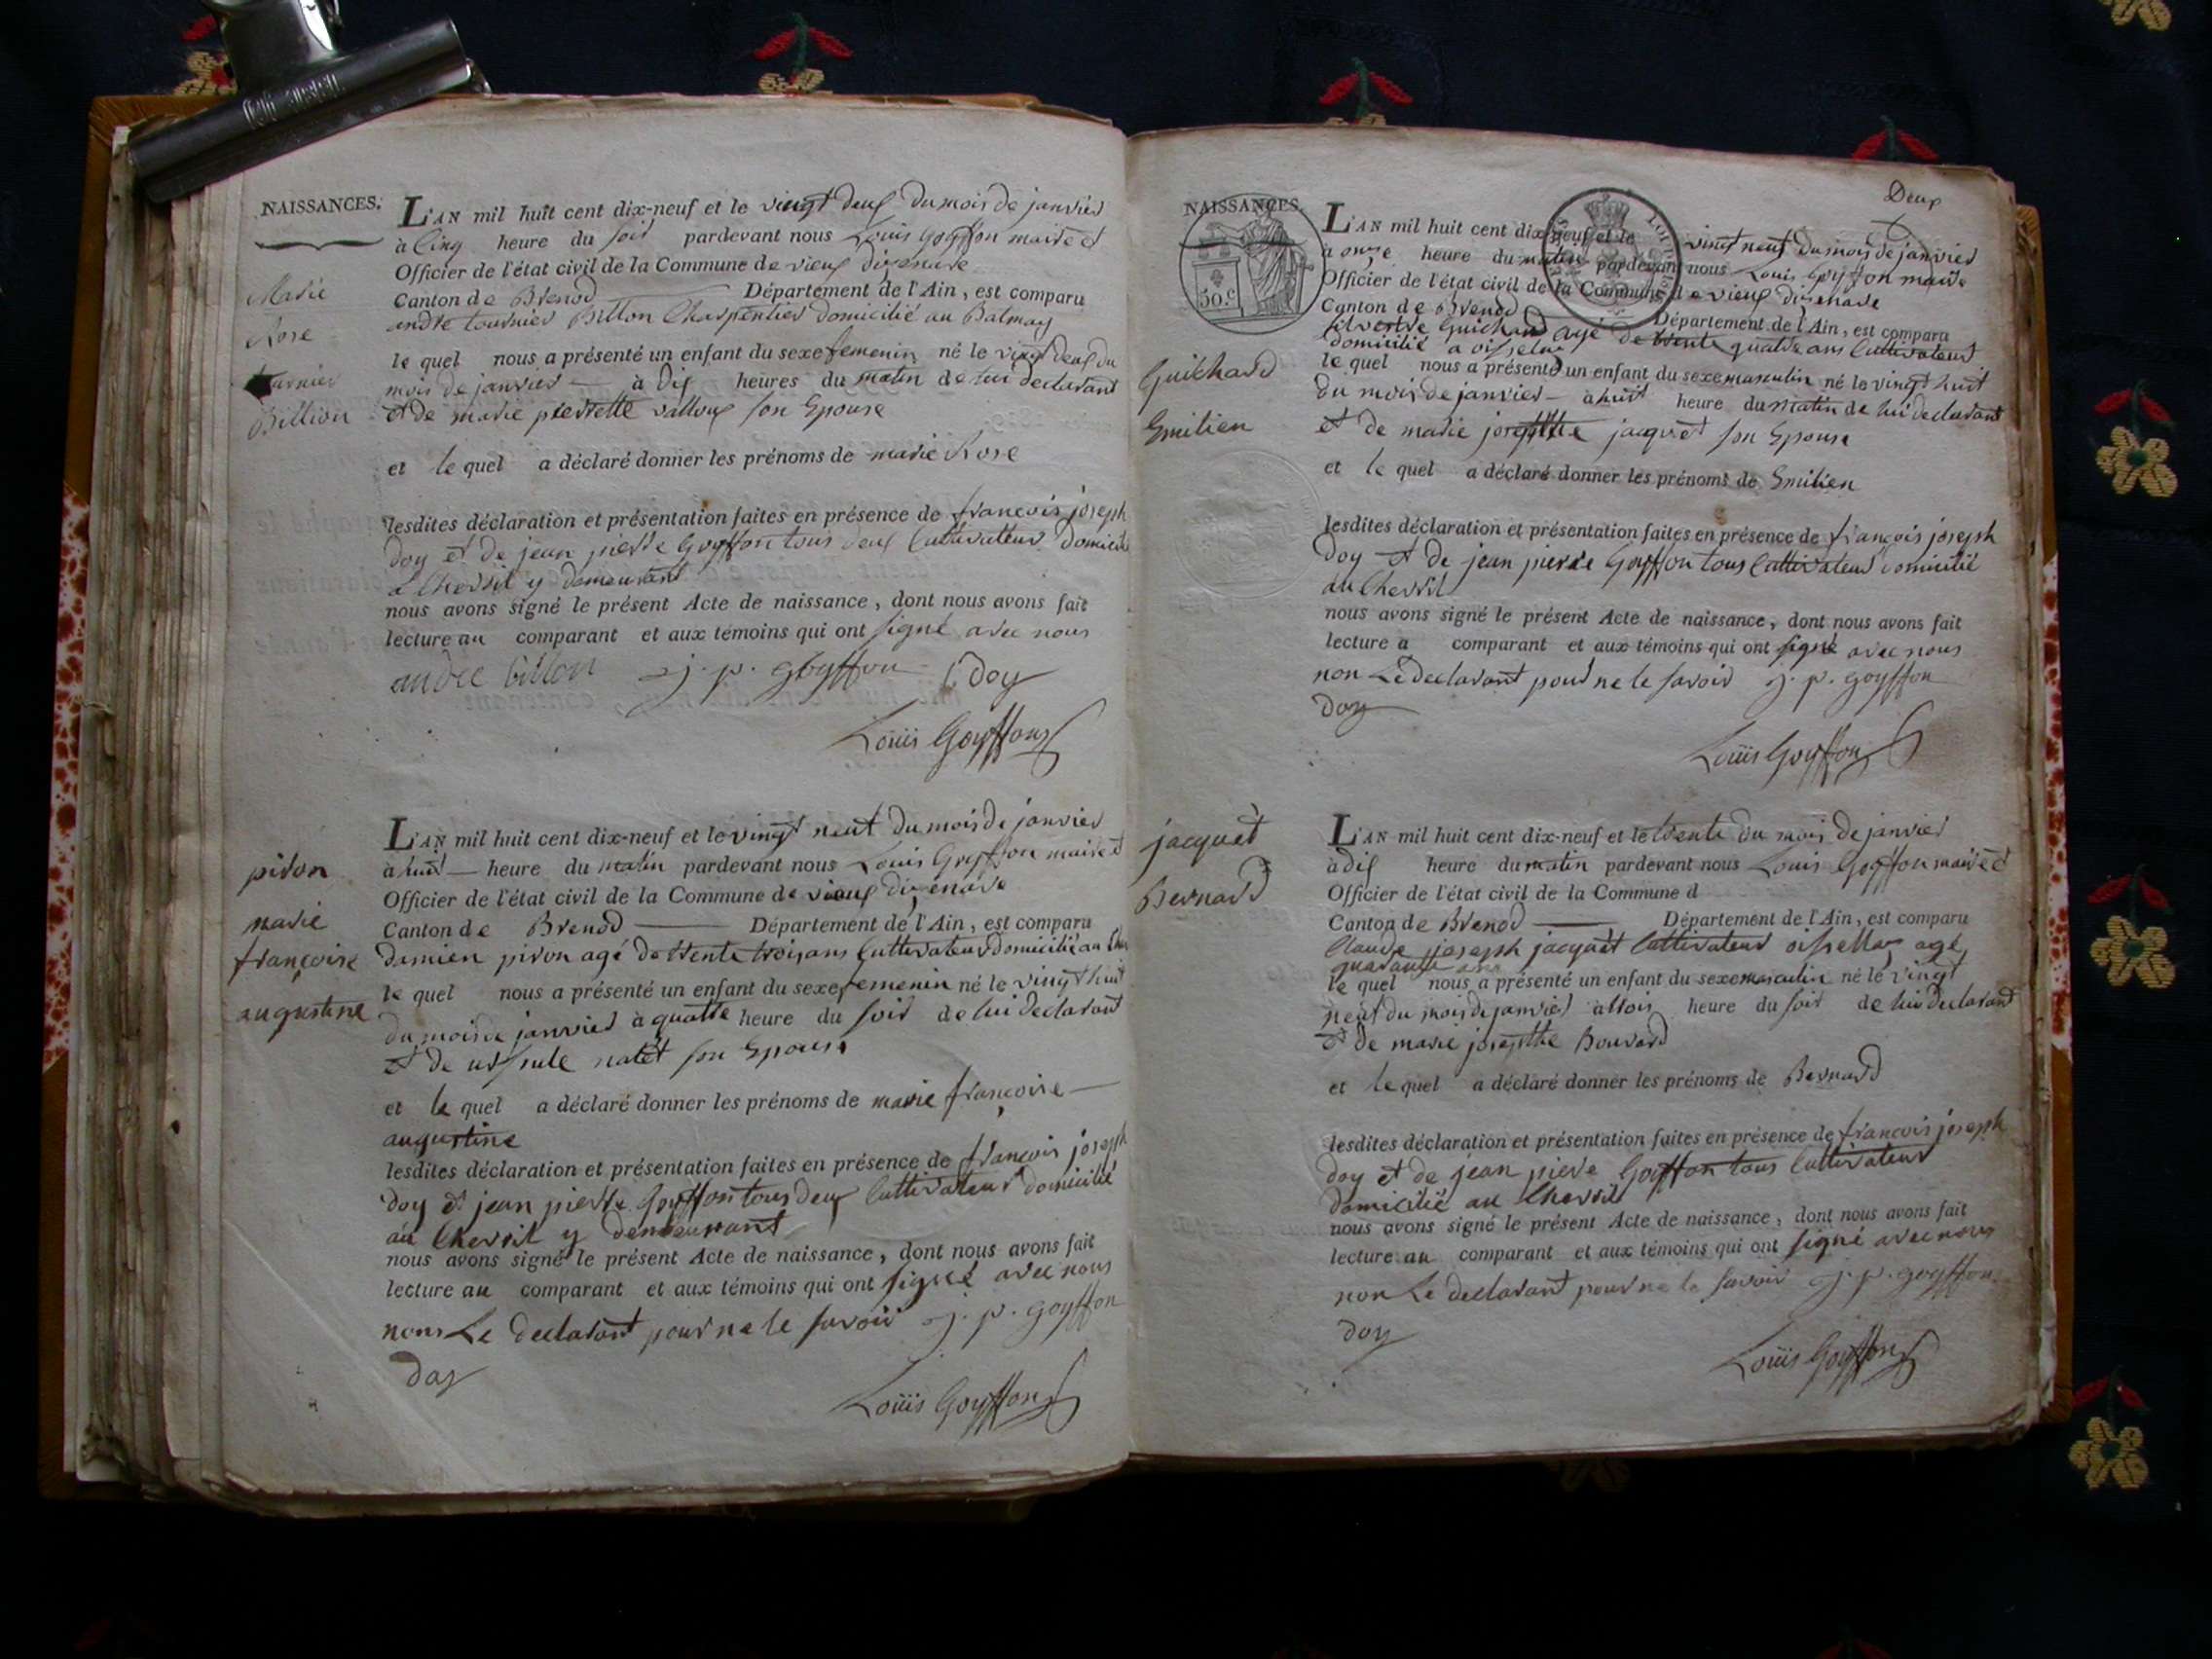 NAISSANCES.
Marie
Rose
tournier
Billion
L'AN mil huit cent dix-neuf et le vingt deux du mois de janvier
à Cinq heure du soir pardevant nous Louis goyffon maire et
Officier de l'état civil de la Commune de vieux dizenave
Canton de Brenod Département de l'Ain, est comparu
andre tournier Billon Charpentier domicilié au Balmay
le quel nous a présenté un enfant du sexe femenin né le vingt deux du
mois de janvier à dix heures du matin de lui declarant
et de marie pierrette valloux son Epouse
et le quel a déclaré donner les prénoms de marie Rose
lesdites déclaration et présentation faites en présence de francois joseph
doy et de jean pierre Goyffon tous deux Cultivateur domicilié
a Chevril y demeurant
nous avons signé le présent Acte de naissance, dont nous avons fait
lecture au comparant et aux témoins qui ont signé avec nous
andre billon j. p. goyffon doy
Louis Goyffon
piron
marie
françoise
augustine
L'AN mil huit cent dix-neuf et le vingt neuf du mois de janvier
à huit heure du matin pardevant nous Louis Goyffon maire et
Officier de l'état civil de la Commune de vieux dizenave
Canton de Brenod Département de l'Ain, est comparu
Damien piron agé de trente trois ans Cultivateur domicilié au
le quel nous a présenté un enfant du sexe femenin né le vingt huit
du mois de janvier à quattre heure du soir de lui declarant
et de urssule natet son Epouse
et le quel a déclaré donner les prénoms de marie françoise
augustine
lesdites déclaration et présentation faites en présence de francois joseph
doy et jean pierre Goyffon tous deux Cultivateur domicilié
au Chevril y demeurant
nous avons signé le présent Acte de naissance, dont nous avons fait
lecture au comparant et aux témoins qui ont signé avec nous
non Le declarant pour ne le savoir j. p. goyffon
doy
Louis Goyffon
Deux
NAISSANCES.
50.c
Guichard
Emilien
L'AN mil huit cent dix-neuf et le vingt neuf du mois de janvier
à onze heure du matin pardevant nous Louis Goyffon maire
Officier de l'état civil de la Commune de vieux dizenave
Canton de Brenod Département de l'Ain, est comparu
silvestre Guichard agé de trente quatre ans Cultivateur
domicilié a oisselas
le quel nous a présenté un enfant du sexe masculin né le vingt huit
du mois de janvier à huit heure du matin de lui declarant
et de marie josephtte jacquet son Epouse
et le quel a déclaré donner les prénoms de Emilien
lesdites déclaration et présentation faites en présence de françois joseph
doy et de jean pierre Goyffon tous Cultivateur domicilié
au Chevril
nous avons signé le présent Acte de naissance, dont nous avons fait
lecture a comparant et aux témoins qui ont signé avec nous
non Le declarant pour ne le savoir j. p. goyffon
doy
Louis Goyffon
jacquet
Bernard
L'AN mil huit cent dix-neuf et le trente du mois de janvier
à dix heure du matin pardevant nous Louis Goyffon maire et
Officier de l'état civil de la Commune d
Canton de Brenod Département de l'Ain, est comparu
Claude joseph jacquet Cultivateur oissellas agé
quarante ans
le quel nous a présenté un enfant du sexe masculin né le vingt
neuf du mois de janvier a trois heure du soir de lui declarant
et de marie josephtte Bouvard
et le quel a déclaré donner les prénoms de Bernard
lesdites déclaration et présentation faites en présence de francois joseph
doy et de jean piere Goyffon tous Cultivateur
domicilié au Chevril
nous avons signé le présent Acte de naissance, dont nous avons fait
lecture au comparant et aux témoins qui ont signé avec nous
non Le declarant pour ne le savoir j. p. goyffon
doy
Louis Goyffon